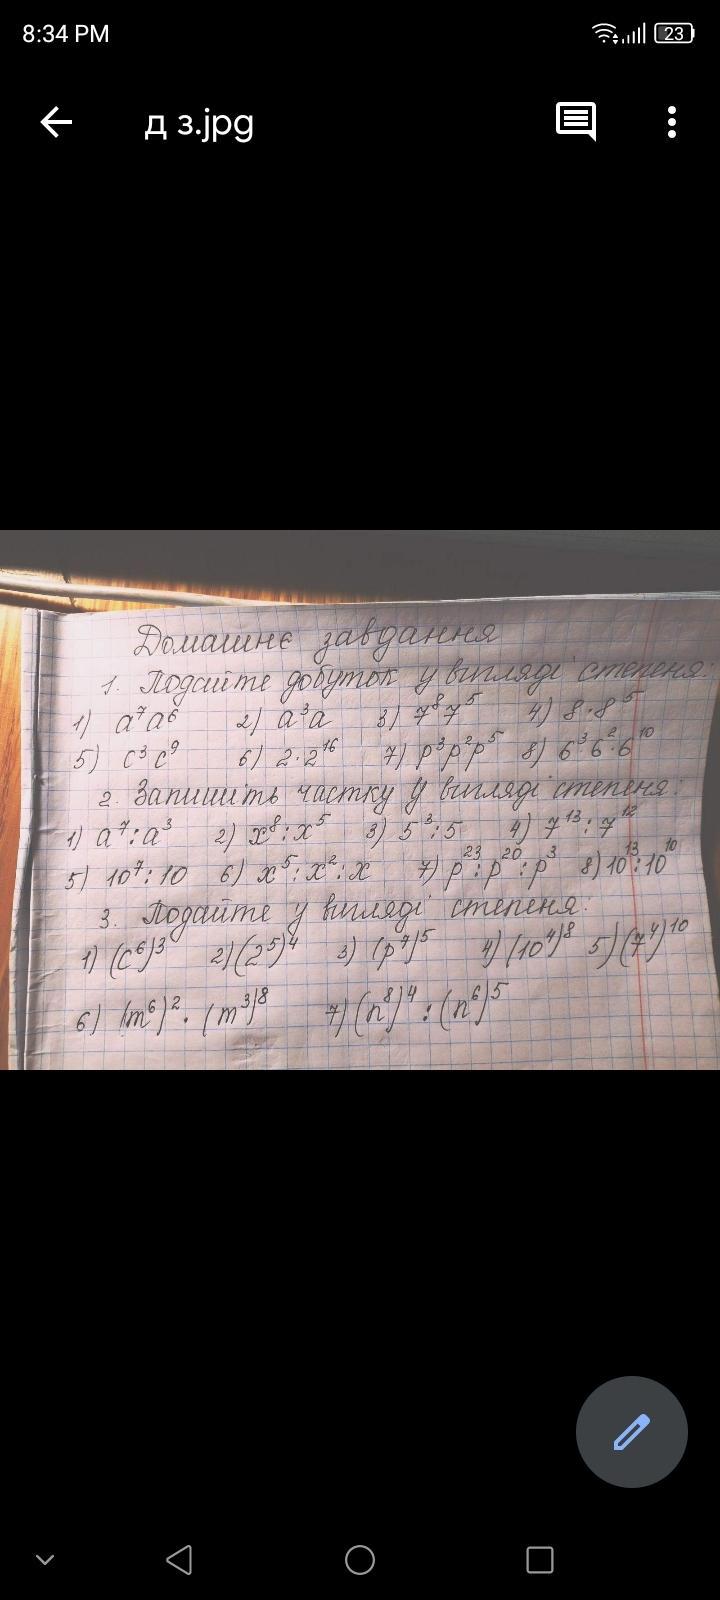 8:34 PM 23
д з.jpg
Домашнє завдання
1. Подайте добуток у вигляді степеня:
1) a⁷a⁶ 2) a³a 3) 7⁸7⁵ 4) 8·8⁵
5) c³c⁹ 6) 2·2¹⁶ 7) p³p²p⁵ 8) 6³6²·6¹⁰
2. Запишіть частку у вигляді степеня:
1) a⁷:a³ 2) x⁸:x⁵ 3) 5³:5 4) 7¹³:7¹²
5) 10⁷:10 6) x⁵:x²:x 7) p²³:p²⁰:p³ 8) 10¹³:10¹⁰
3. Подайте у вигляді степеня:
1) (c⁶)³ 2) (2⁵)⁴ 3) (p⁷)⁵ 4) (10⁴)⁸ 5) (7⁴)¹⁰
6) (m⁶)²·(m³)⁸ 7) (n⁸)⁴:(n⁶)⁵